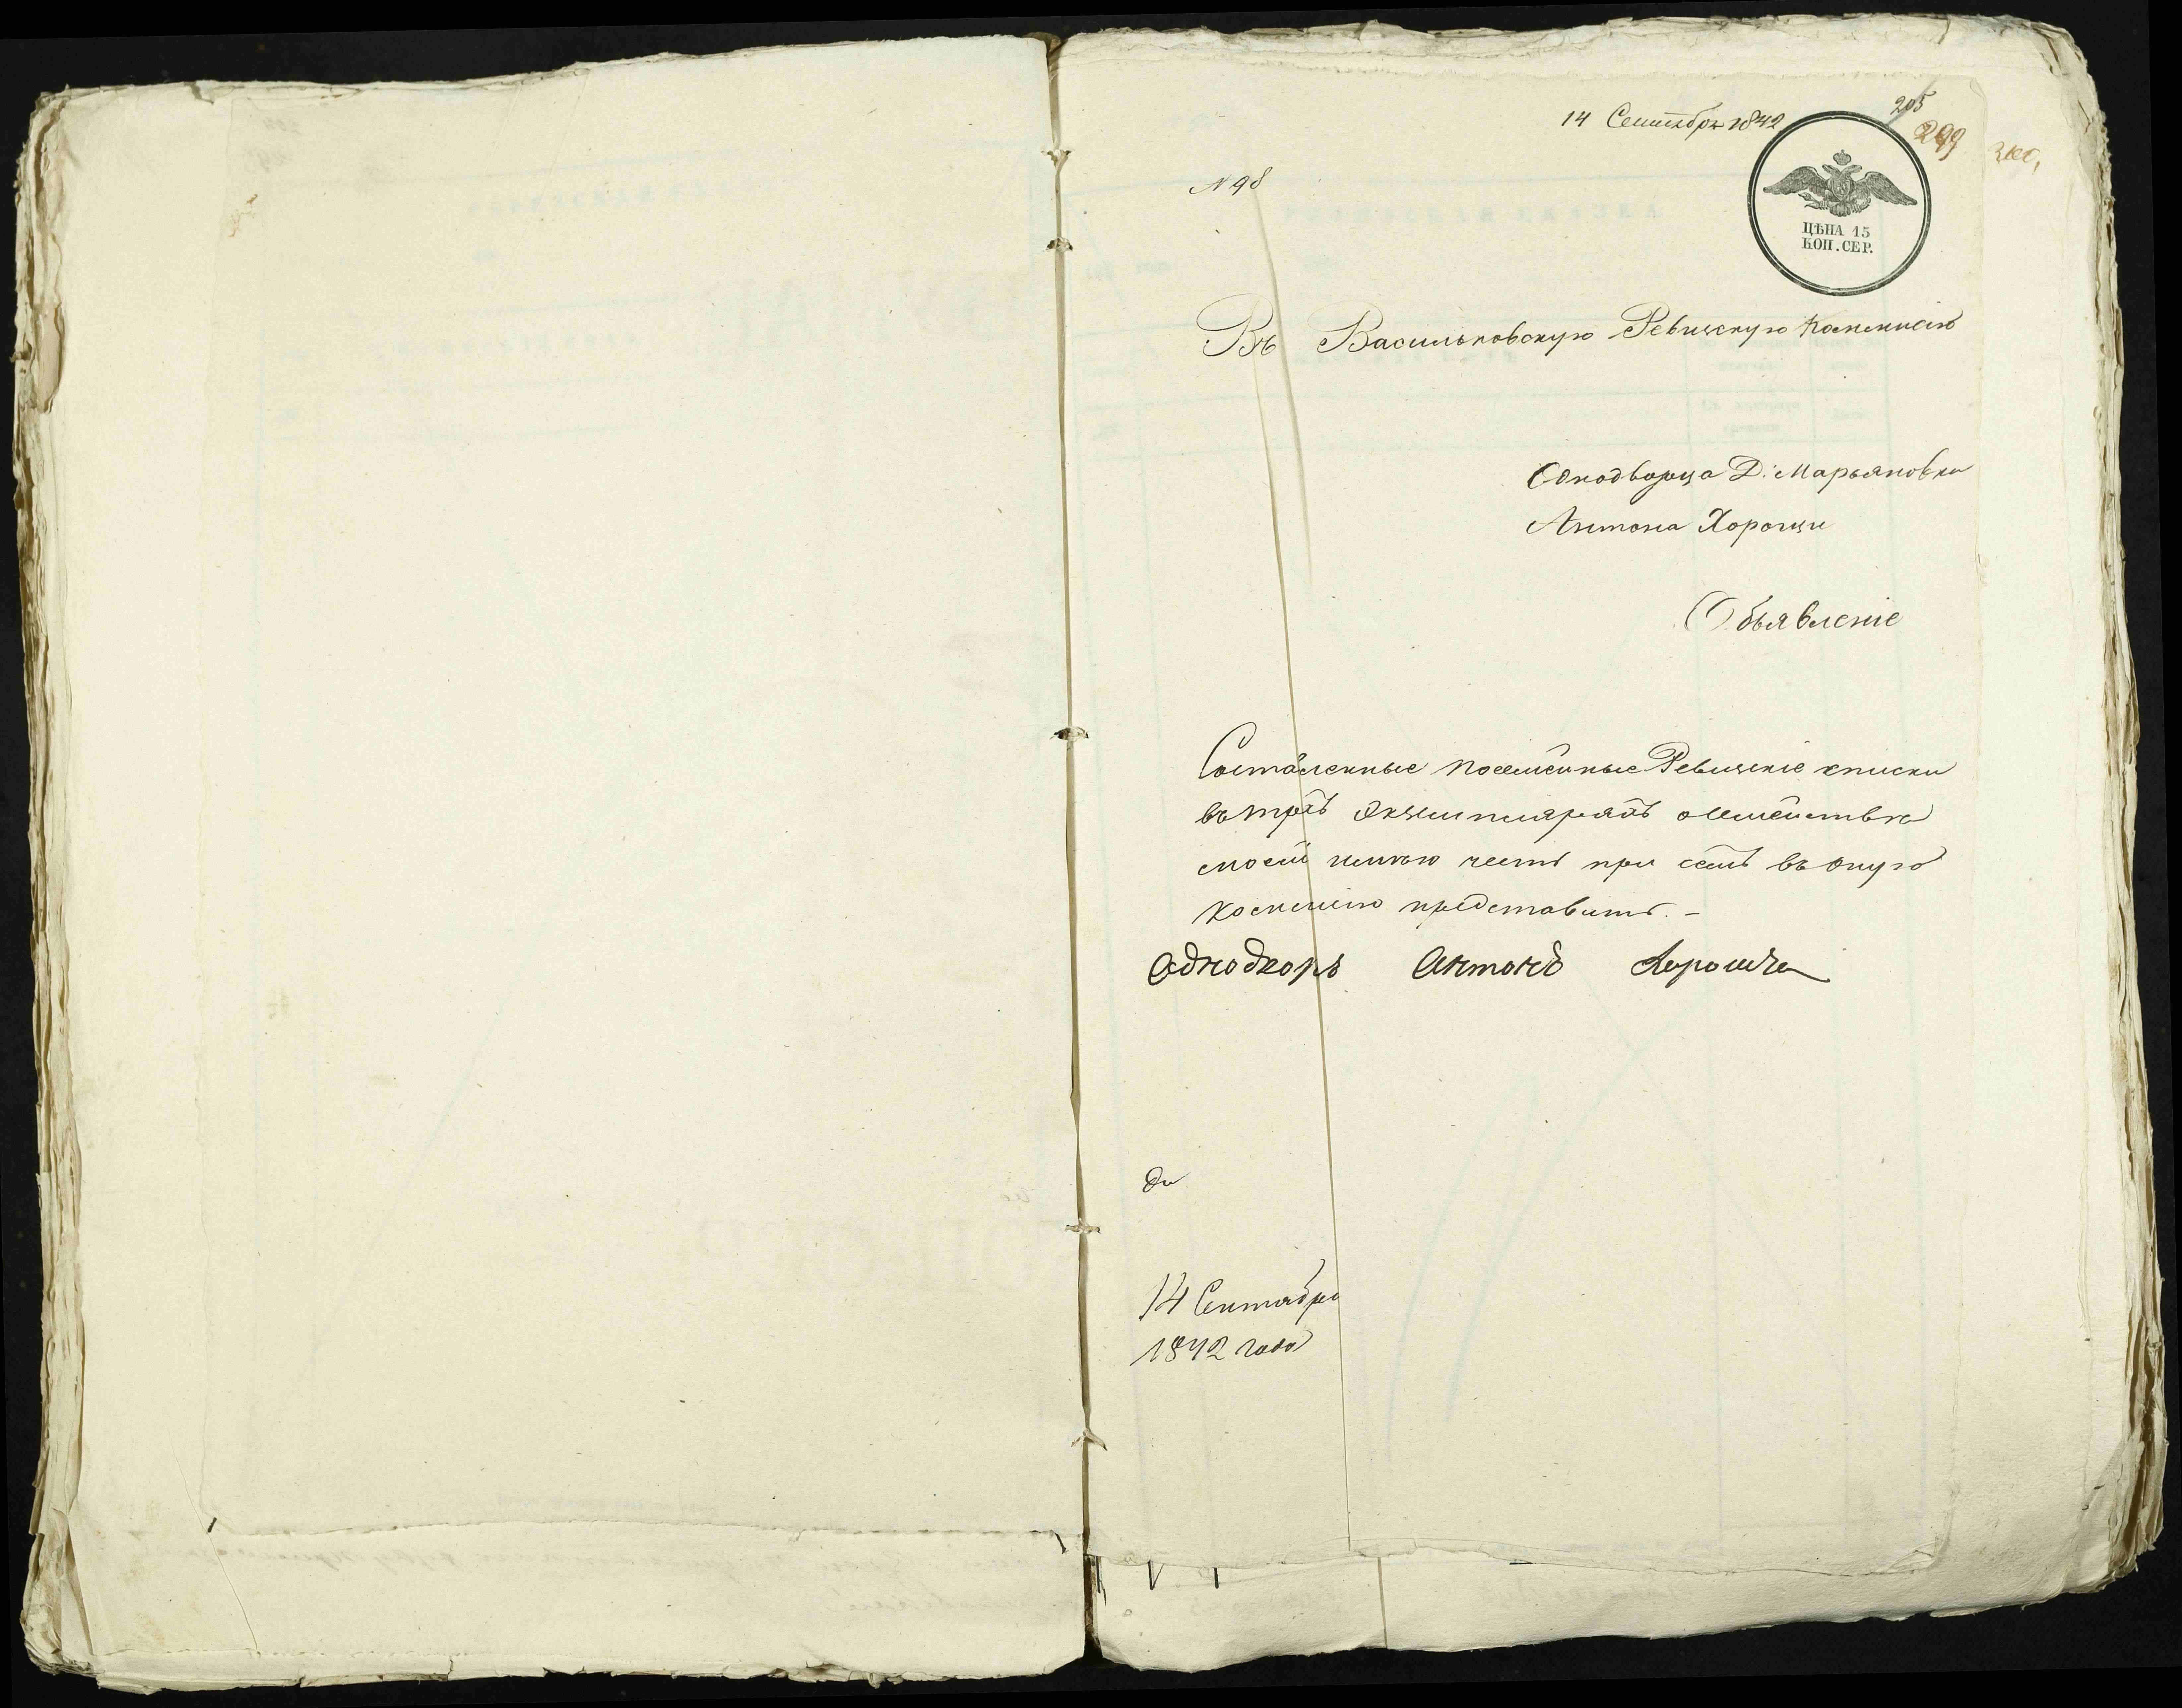 14 Сентября 1842
205
299
N 98
ЦѢНА 15
КОП. СЕР.
Въ Васильковскую Ревизскую Коммисію
Однодворца Д: Марьяновки
Антона Хорошы
Объявленіе
Составленные посемейные Ревизскіе списки
въ трехъ Экземплярахъ о семействе
моемъ имею честь при семъ въ оную
Коммисію представить. -
Однодворъ Антонъ Хороша
14 Сентября
1842 года